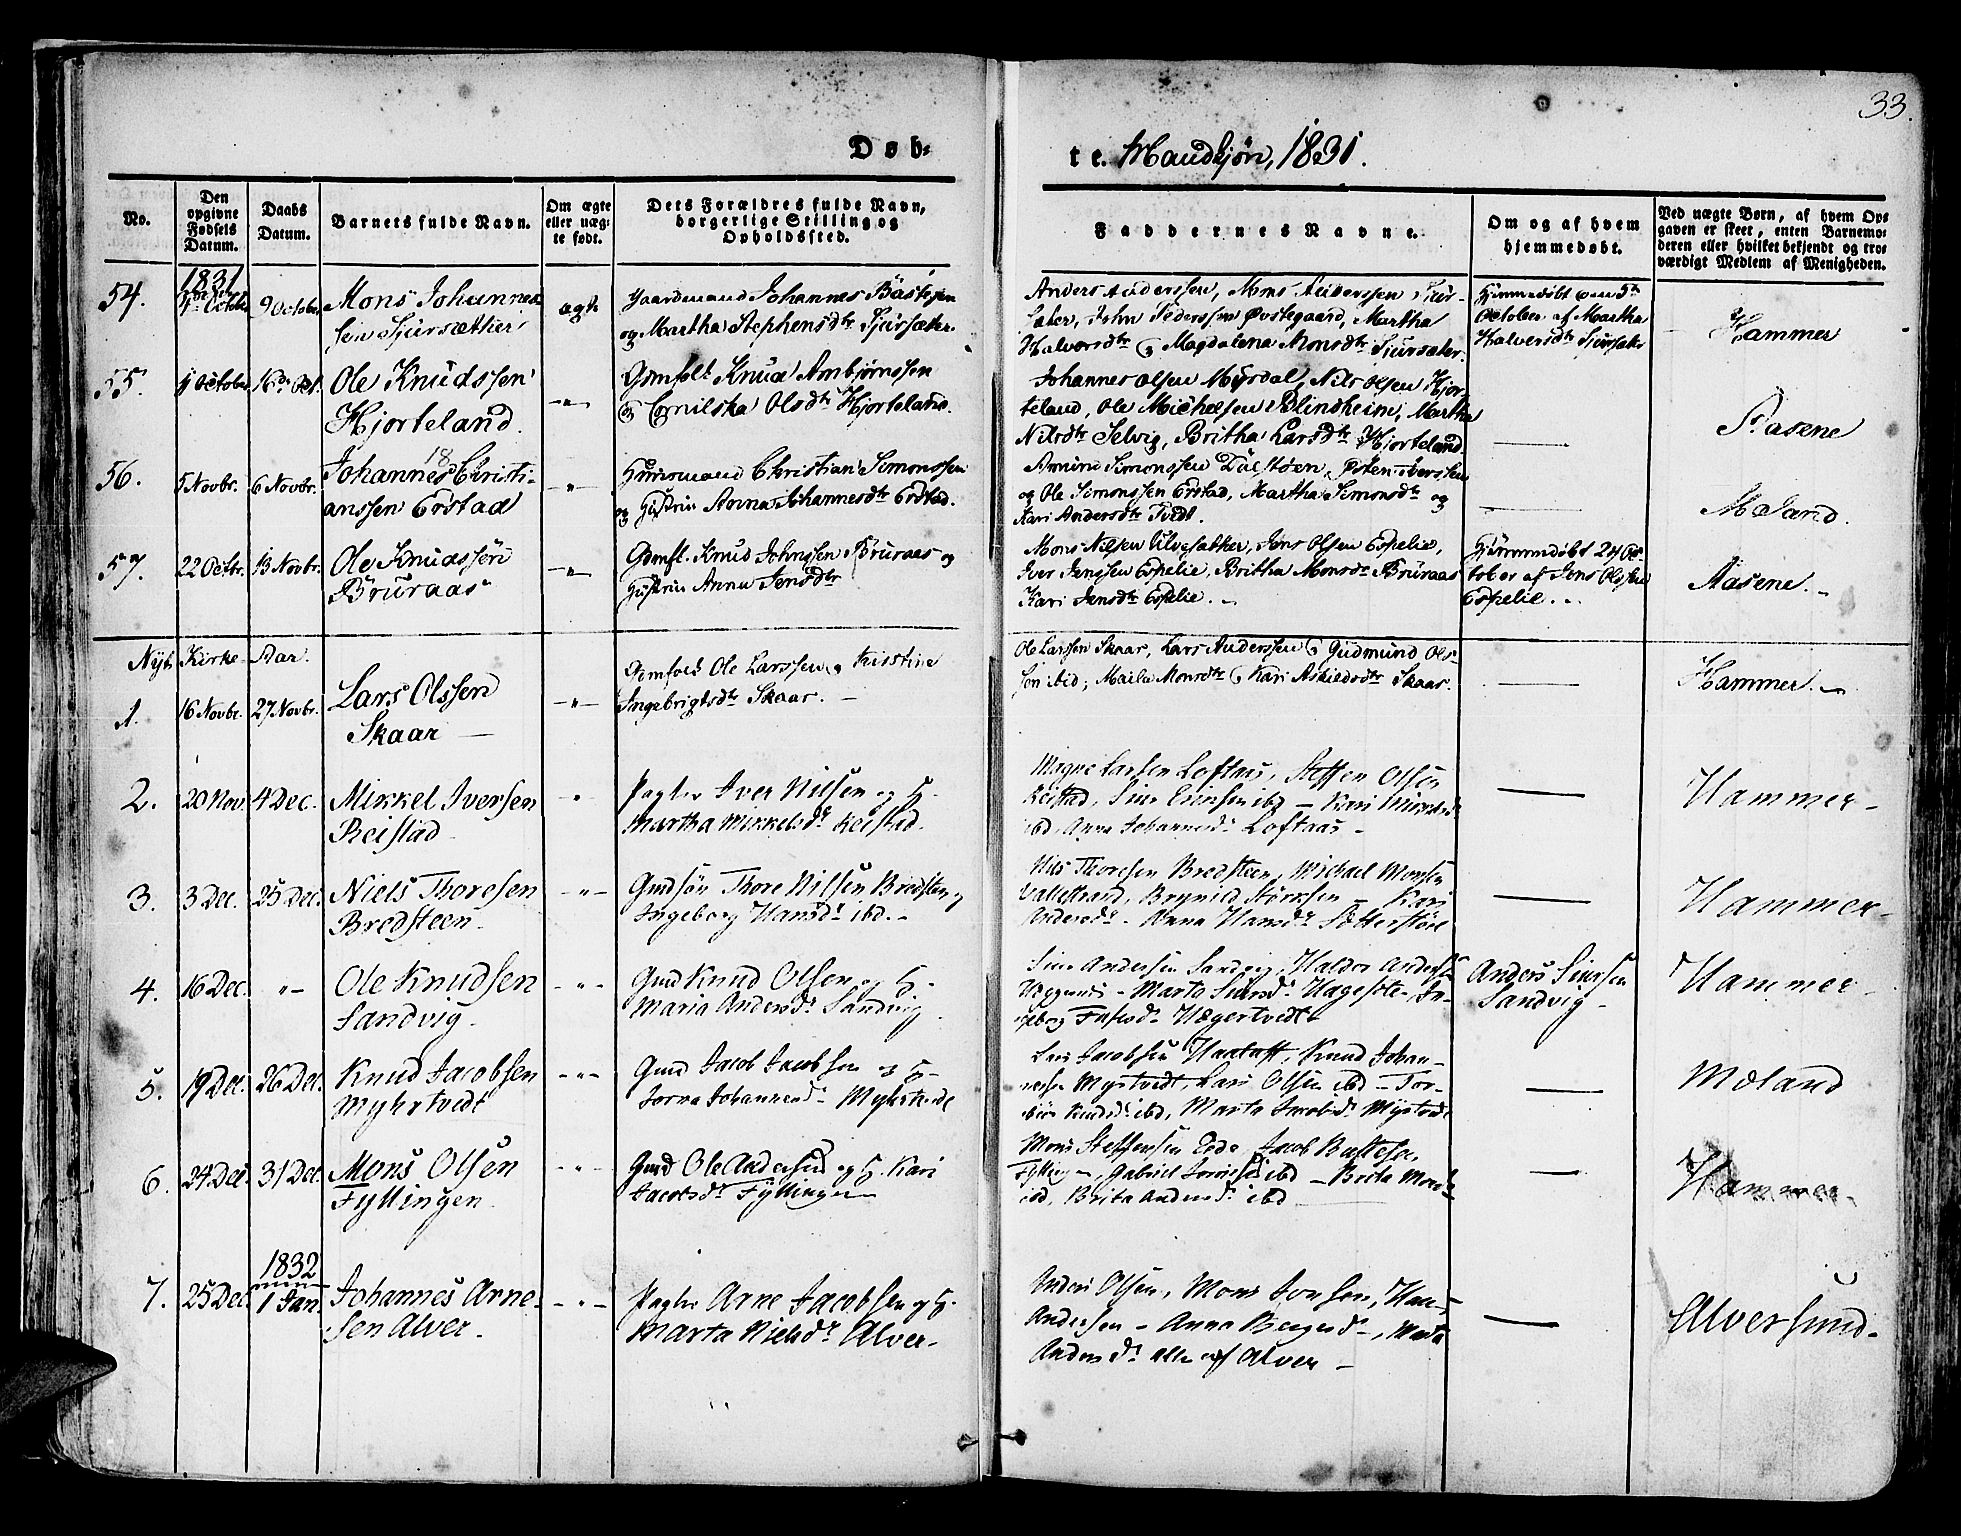 33.
Døb-
te. Mandkjøn, 1831.
No.
Den opgivne Fødsels Datum.
Daabs Datum.
Barnets fulde Navn.
Om ægte eller uæg-te født.
Dets Forældres fulde Navn, borgerlige Stilling og Opholdssted.
Faddernes Navne.
Om og af hvem hjemmedøbt.
Ved uægte Børn, af hvem Op-gaven er skeet, enten Barnemo-deren eller hvilket bekjendt og tro-værdigt Medlem af Menigheden.
1831
54. October 9 October Mons Johannes-
sen Sjursætter ægte
Gaardmand Johannes
og Martha Stephensdtr Sjursæter.
Anders Anderssen, Mons Anderssen Sjur-
sæter, John Pederssen Østegaard, Martha
Halversdtr og Magdalena Monsdtr Sjursæter.
Hjemmedøbt den 5te
October af Martha
Halversdtr Sjursætr
Hammer
55. October Oct. Ole Knudssen
Hjorteland.
Gdmfolk Knud Ambjørnssen
og Cornilska Olsdtr Hjorteland.
Johannes Olsen Myrdal, Nils Olsen Hjor-
teland, Ole Michelsen Blindheim, Martha
Nilsdtr Selvig, Britha Larsdtr Hjorteland.
Aasene
56. 5 Novbr. 6 Novbr. Johannes Christi-
anssen Erstad
Huusmand Christian Simonssen
og Hustrue Anna Johannesdtr Erstad.
Amund Simonssen Dalstøen, Østen Iverssen
og Ole Simonssen Erstad, Martha Simonsdtr og
Kari Andersdtr Tvedt.
Mæland.
57. 22 Octbr. 13 Novbr. Ole Knudssøn
Bruraas
Gdmfl. Knud Johnssen Bruraas og
Hustrue Anna Jensdtr
Mons Nilsen Ulvesætker, Jens Olsen Espelie,
Iver Jenssen Espelie, Britha Monsdtr Bruraas
Kari Jensdtr Espelie.
Hjemmedøbt 24 Oc
tober af Jens Olssen
Espelie.
Aasene.
Nyt Kirke-Aar.
1. 16 Novbr. 27 Novbr. Lars Olssen
Skaar
Gdmfolk Ole Larssen og Kristine
Ingebrigtsdtr Skaar.
Ole Larssen Skaar, Lars Anderssen og Gudmund Ols-
sen ibid; Monsdtr og Kari Askieldsdtr Skaar.
Hammer.
2. 20 Nov. 4 Dec. Mikkel Iversen
Reistad
Pagter Iver Nilsen og H.
Martha Mikkelsdr Reistad.
Magne Larsen Loftaas, Steffen Olsen
Reistad, ibd - Kari
ibd, Anna Johannesdr Loftaas -
Hammer -
3. 3 Dec. 25 Dec. Niels Thoresen
Bredsteen.
Gmd Thore Nilsen Bredsteen og
Ingeborg Hansdr ibd. -
Nils Thoresen Bredsteen, Michael Monsen
Vallestrand, Brynild Størksen - Kari
Andersdr - Anna Hansdr
Hammer -
4. 16 Dec. Ole Knudsen
Sandvig.
Gmd Knud Olsen og H. -
Maria Andersdr Sandvig.
Andersen Sandvig, Haldor Andersen
- Marta In-
geborg Hægertvedt
Anders
Sandvig -
Hammer -
5. 19 Dec. 26 Dec. Knud Jacobsen
Myhrtvedt
Gmd Jacob Jacobsen og H -
Johannesdr Myhrtvedt
Lars Jacobsen Knud Johan-
nessen Myrtvedt, Lars Olsen ibd - Tor-
Knudsdr ibd, Marta Jacobsdr Myrtvedt
Mæland
6. 24 Dec. 31 Dec. Mons Olsen
Fyllingen.
Gmd Ole Andersen og H. Kari
Jacobsdr Fyllingen
Mons Steffensen Eede, Jacob
Fyllingen, Gabriel ibd - Brita
ibd, Brita Andersdr ibd
Hammer -
1832
7. 25 Dec. 1 Jan. Johannes Arne-
sen Alver -
Pagter Arne Jacobsen og H.
Marta Nielsdr Alver -
Anders Olsen, Mons Jonsen, Hans
Andersen - Anna Marta
Andersdr alle af Alver -
Alversund -